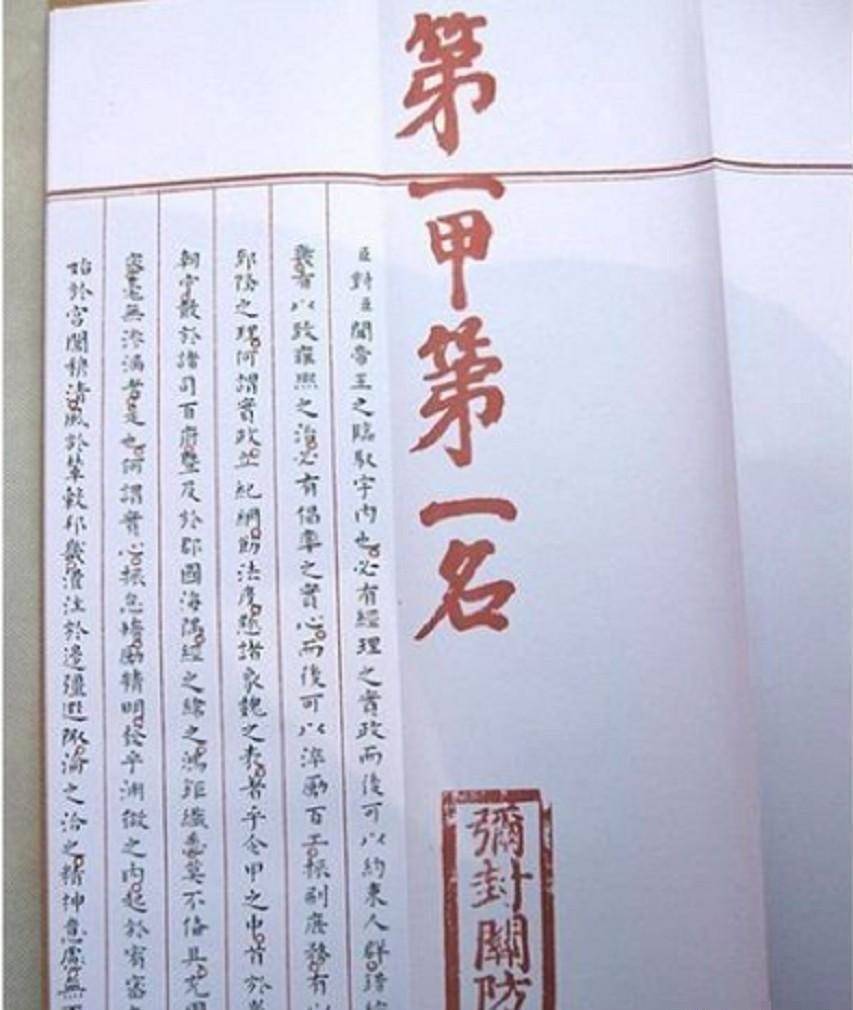 第一甲第一名
彌封關防
臣對臣聞帝王之臨馭宇內也必有經理之實政而後可以約束人群錯綜
幾有以致雍熙之治必有倡率之實心而後可以淬勵百工振刷庶務有以
郅隆之理何謂實政立紀綱飭法度懸諸象魏之表著乎令甲之中首於
朝宁散於諸司百府暨及於郡國海隅經之緯之鴻鉅纖悉莫不備具充周
密毫無滲漏者是也何謂實心振怠惰勵精明發乎淵微之內起於宥密
始於宮闈穆清風於輦轂邦畿灌注於邊疆遐陬淪之洽之精神意慮無